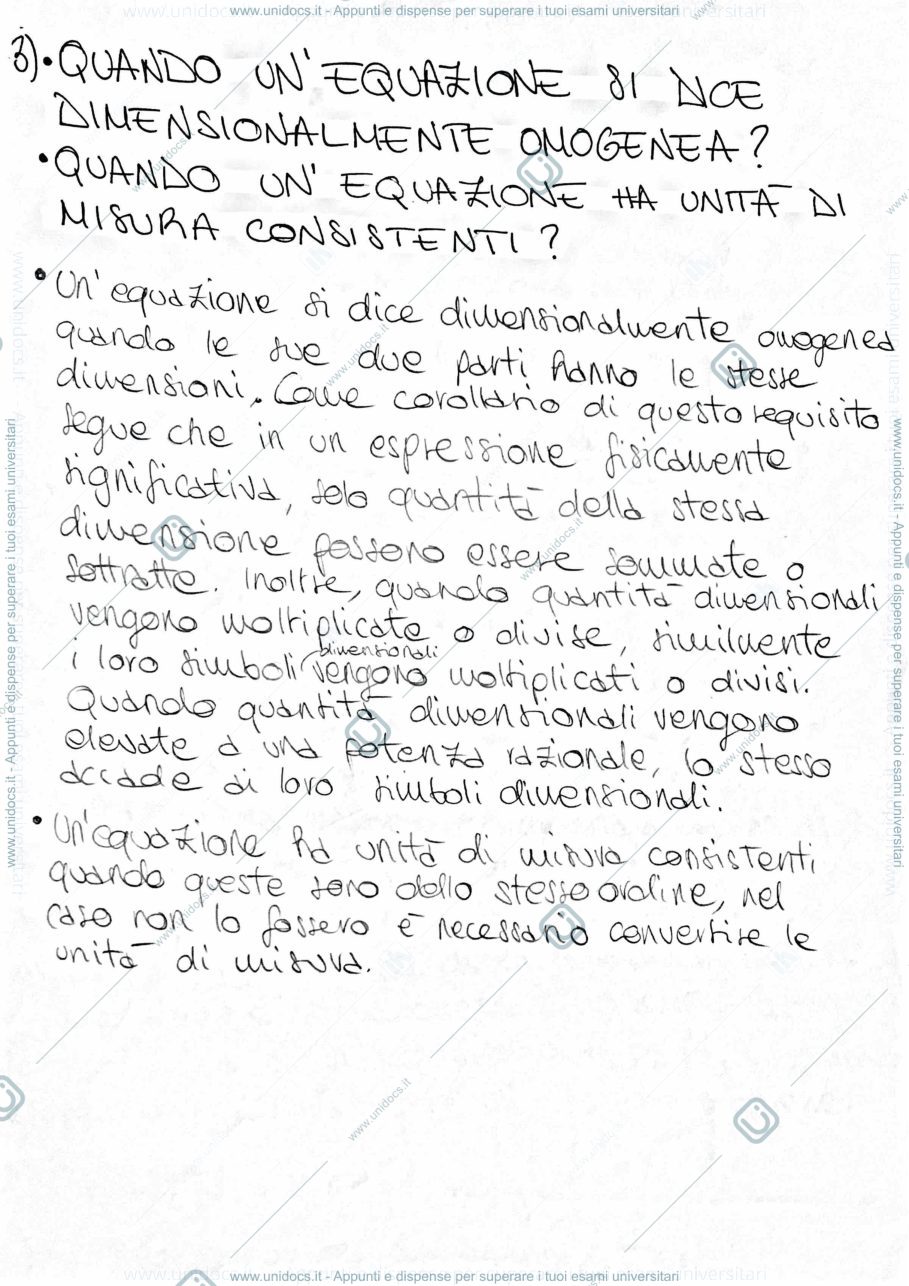 www.unidocs.it - Appunti e dispense per superare i tuoi esami universitari
3)• QUANDO UN' EQUAZIONE SI DICE
DIMENSIONALMENTE OMOGENEA?
• QUANDO UN' EQUAZIONE HA UNITÀ DI
MISURA CONSISTENTI?
• Un' equazione si dice dimensionalmente omogenea
quando le sue due parti hanno le stesse
dimensioni. Come corollario di questo requisito
segue che in un espressione fisicamente
significativa, solo quantità della stessa
dimensione possono essere sommate o
sottratte. Inoltre, quando quantità dimensionali
vengono moltiplicate o divise, similmente
i loro simboli dimensionali vengono moltiplicati o divisi.
Quando quantità dimensionali vengono
elevate a una potenza razionale, lo stesso
accade ai loro simboli dimensionali.
• Un'equazione ha unità di misura consistenti
quando queste sono dello stesso ordine, nel
caso non lo fossero è necessario convertire le
unità di misura.
www.unidocs.it - Appunti e dispense per superare i tuoi esami universitari
www.unidocs.it - Appunti e dispense per superare i tuoi esami universitari
www.unidocs.it - Appunti e dispense per superare i tuoi esami universitari